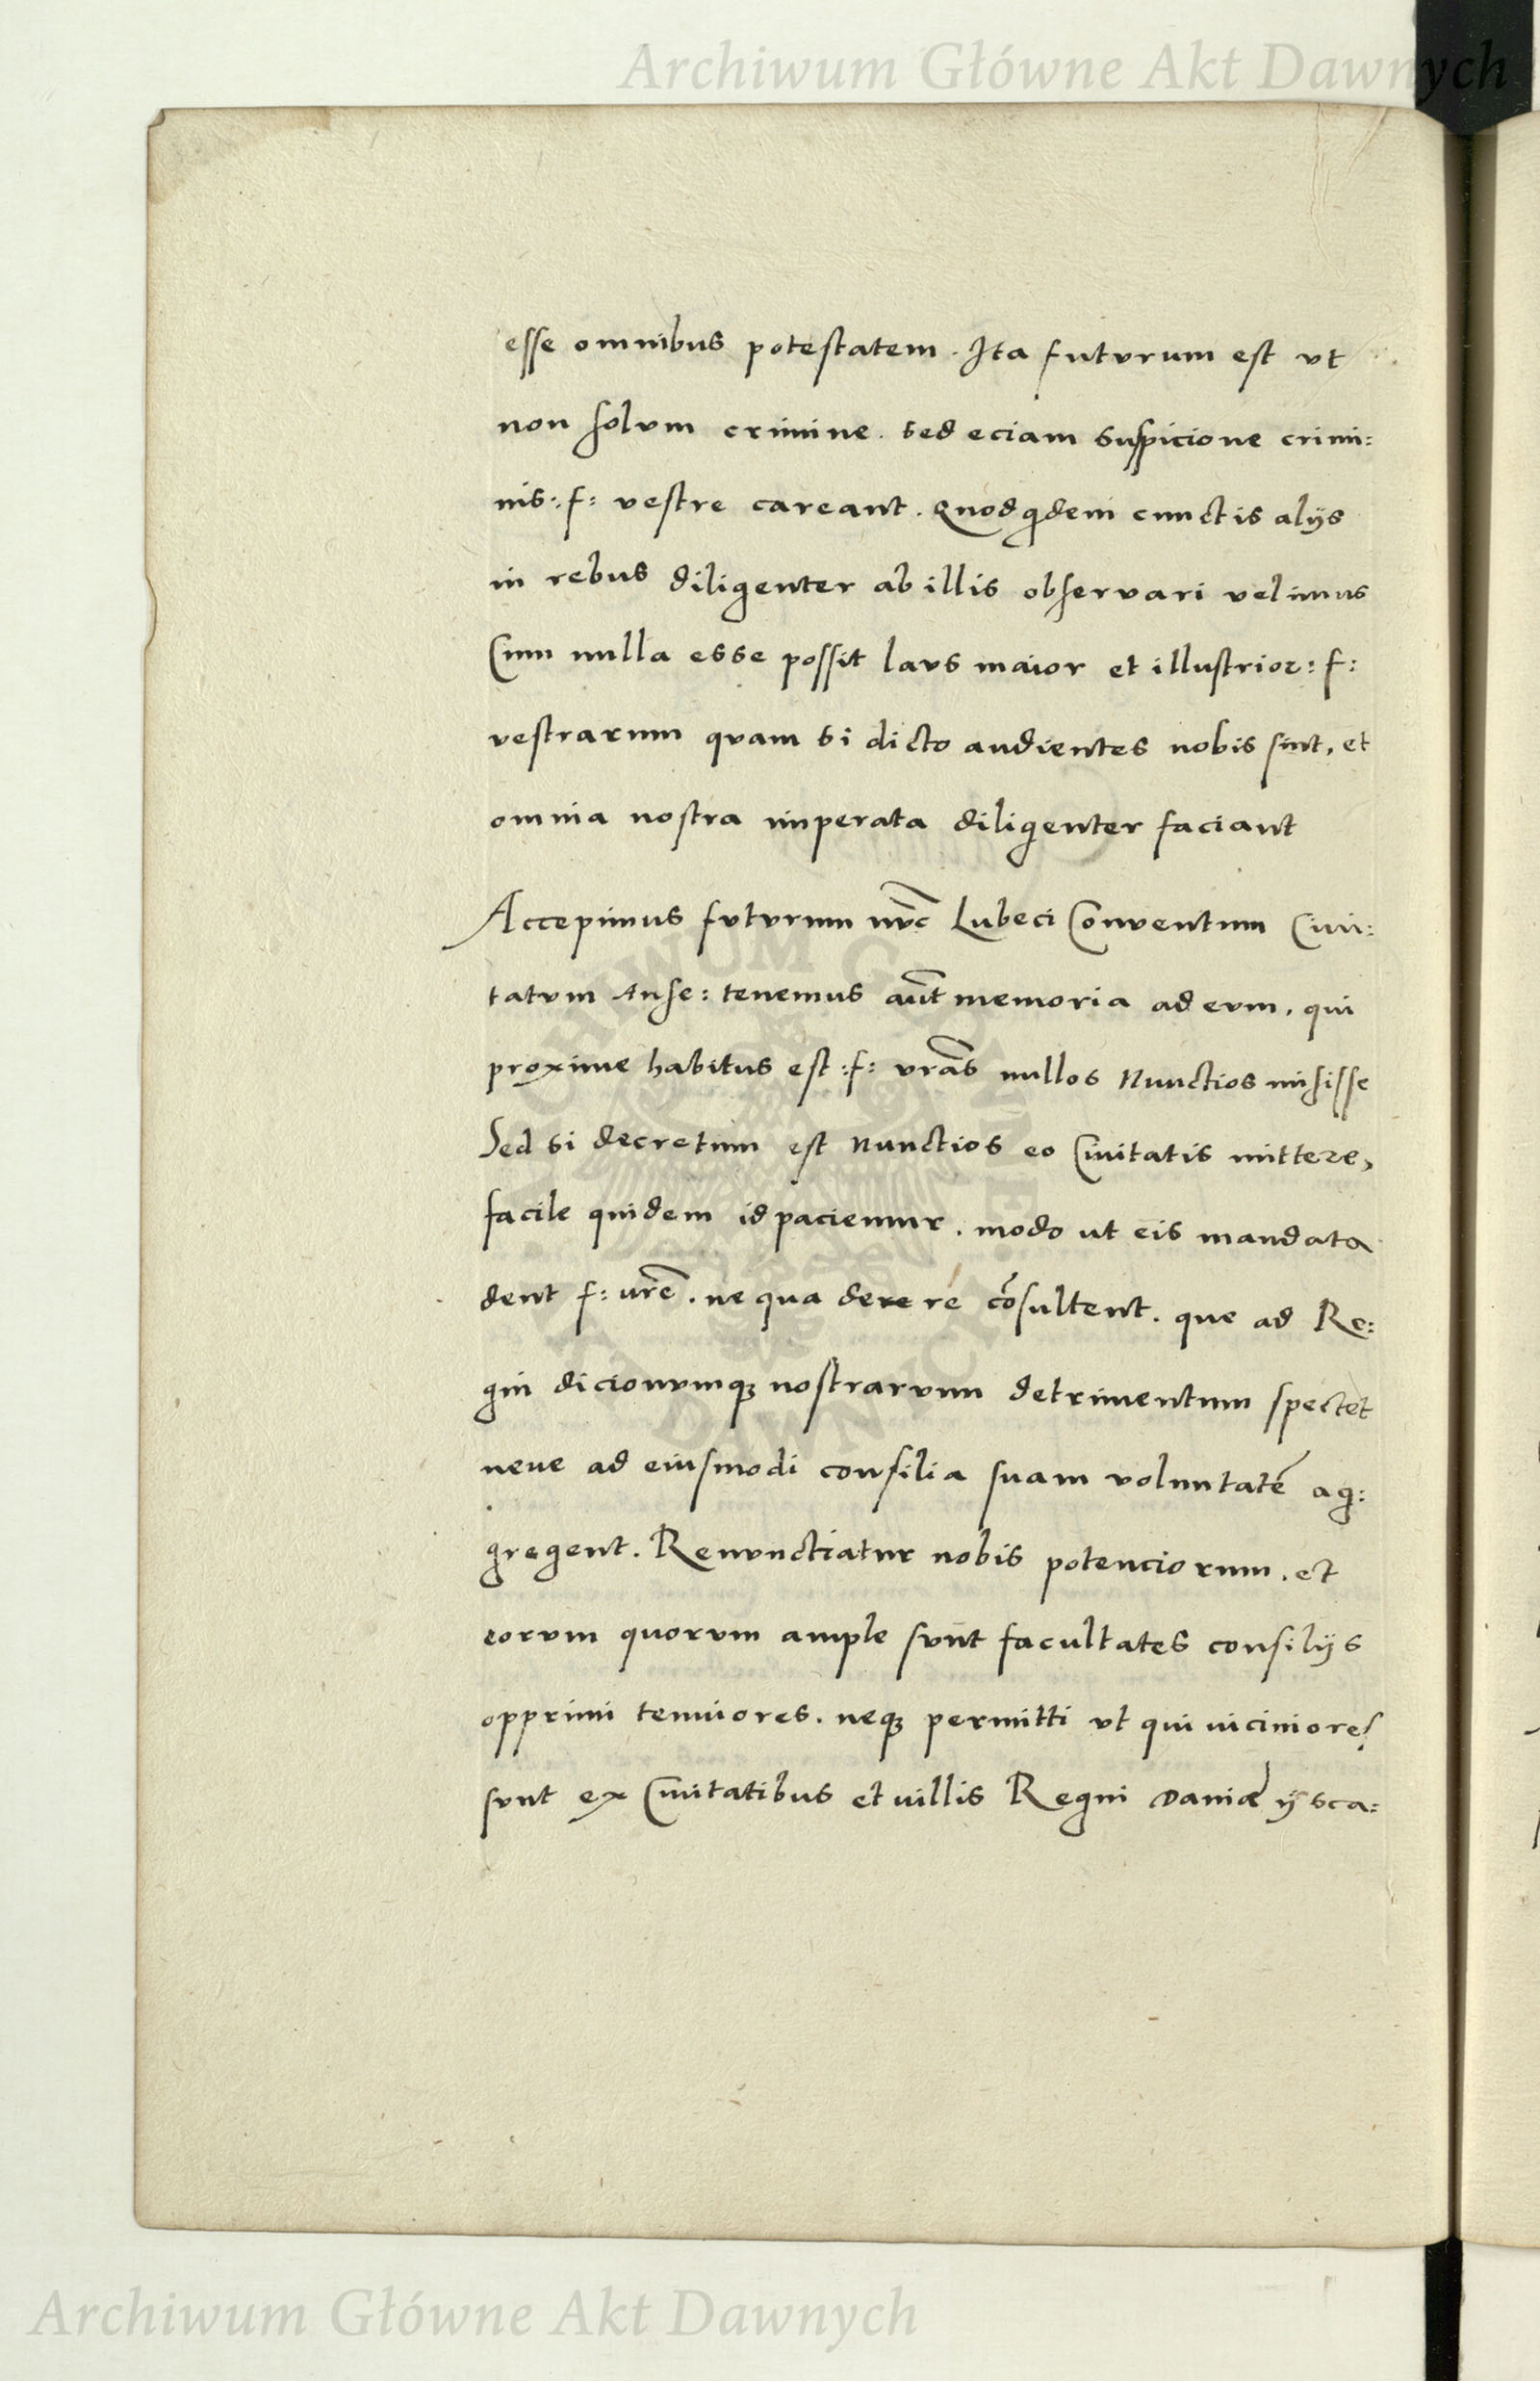 Archiwum Główne Akt Dawnych
esse omnibus potestatem. Ita futurum est vt
non solvm crimine. sed eciam suspicione crimi:
nis: f: vestre careant. Quod qdem cunctis alijs
in rebus diligenter ab illis observari velimus
Cum nulla esse possit lavs maior et illustrior: f:
vestrarum qvam si dicto audientes nobis sint, et
omnia nostra imperata diligenter faciant
Accepimus fvtvrum nvc Lubeci Conventum Civi:
tatvm Anse: tenemus aut memoria ad evm, qui
proxime habitus est: f: vras nullos Nunctios misisse
Sed si decretum est Nunctios eo Civitatis mittere,
facile quidem id paciemur. modo ut eis mandata
dent f: vre. ne qua de re re cosultent. que ad Re:
gni dicionvmq nostrarvm detrimentum spectet
neve ad eiusmodi consilia suam voluntate ag:
gregent. Renvnctiatur nobis potenciorum. et
eorvm quorvm ample svnt facultates consilijs
opprimi tenuiores. neq permitti vt qui viciniores
svnt ex Civitatibus et villis Regni Daniæ ij sca:
ARCHIWUM GŁÓWNE AKT DAWNYCH
Archiwum Główne Akt Dawnych